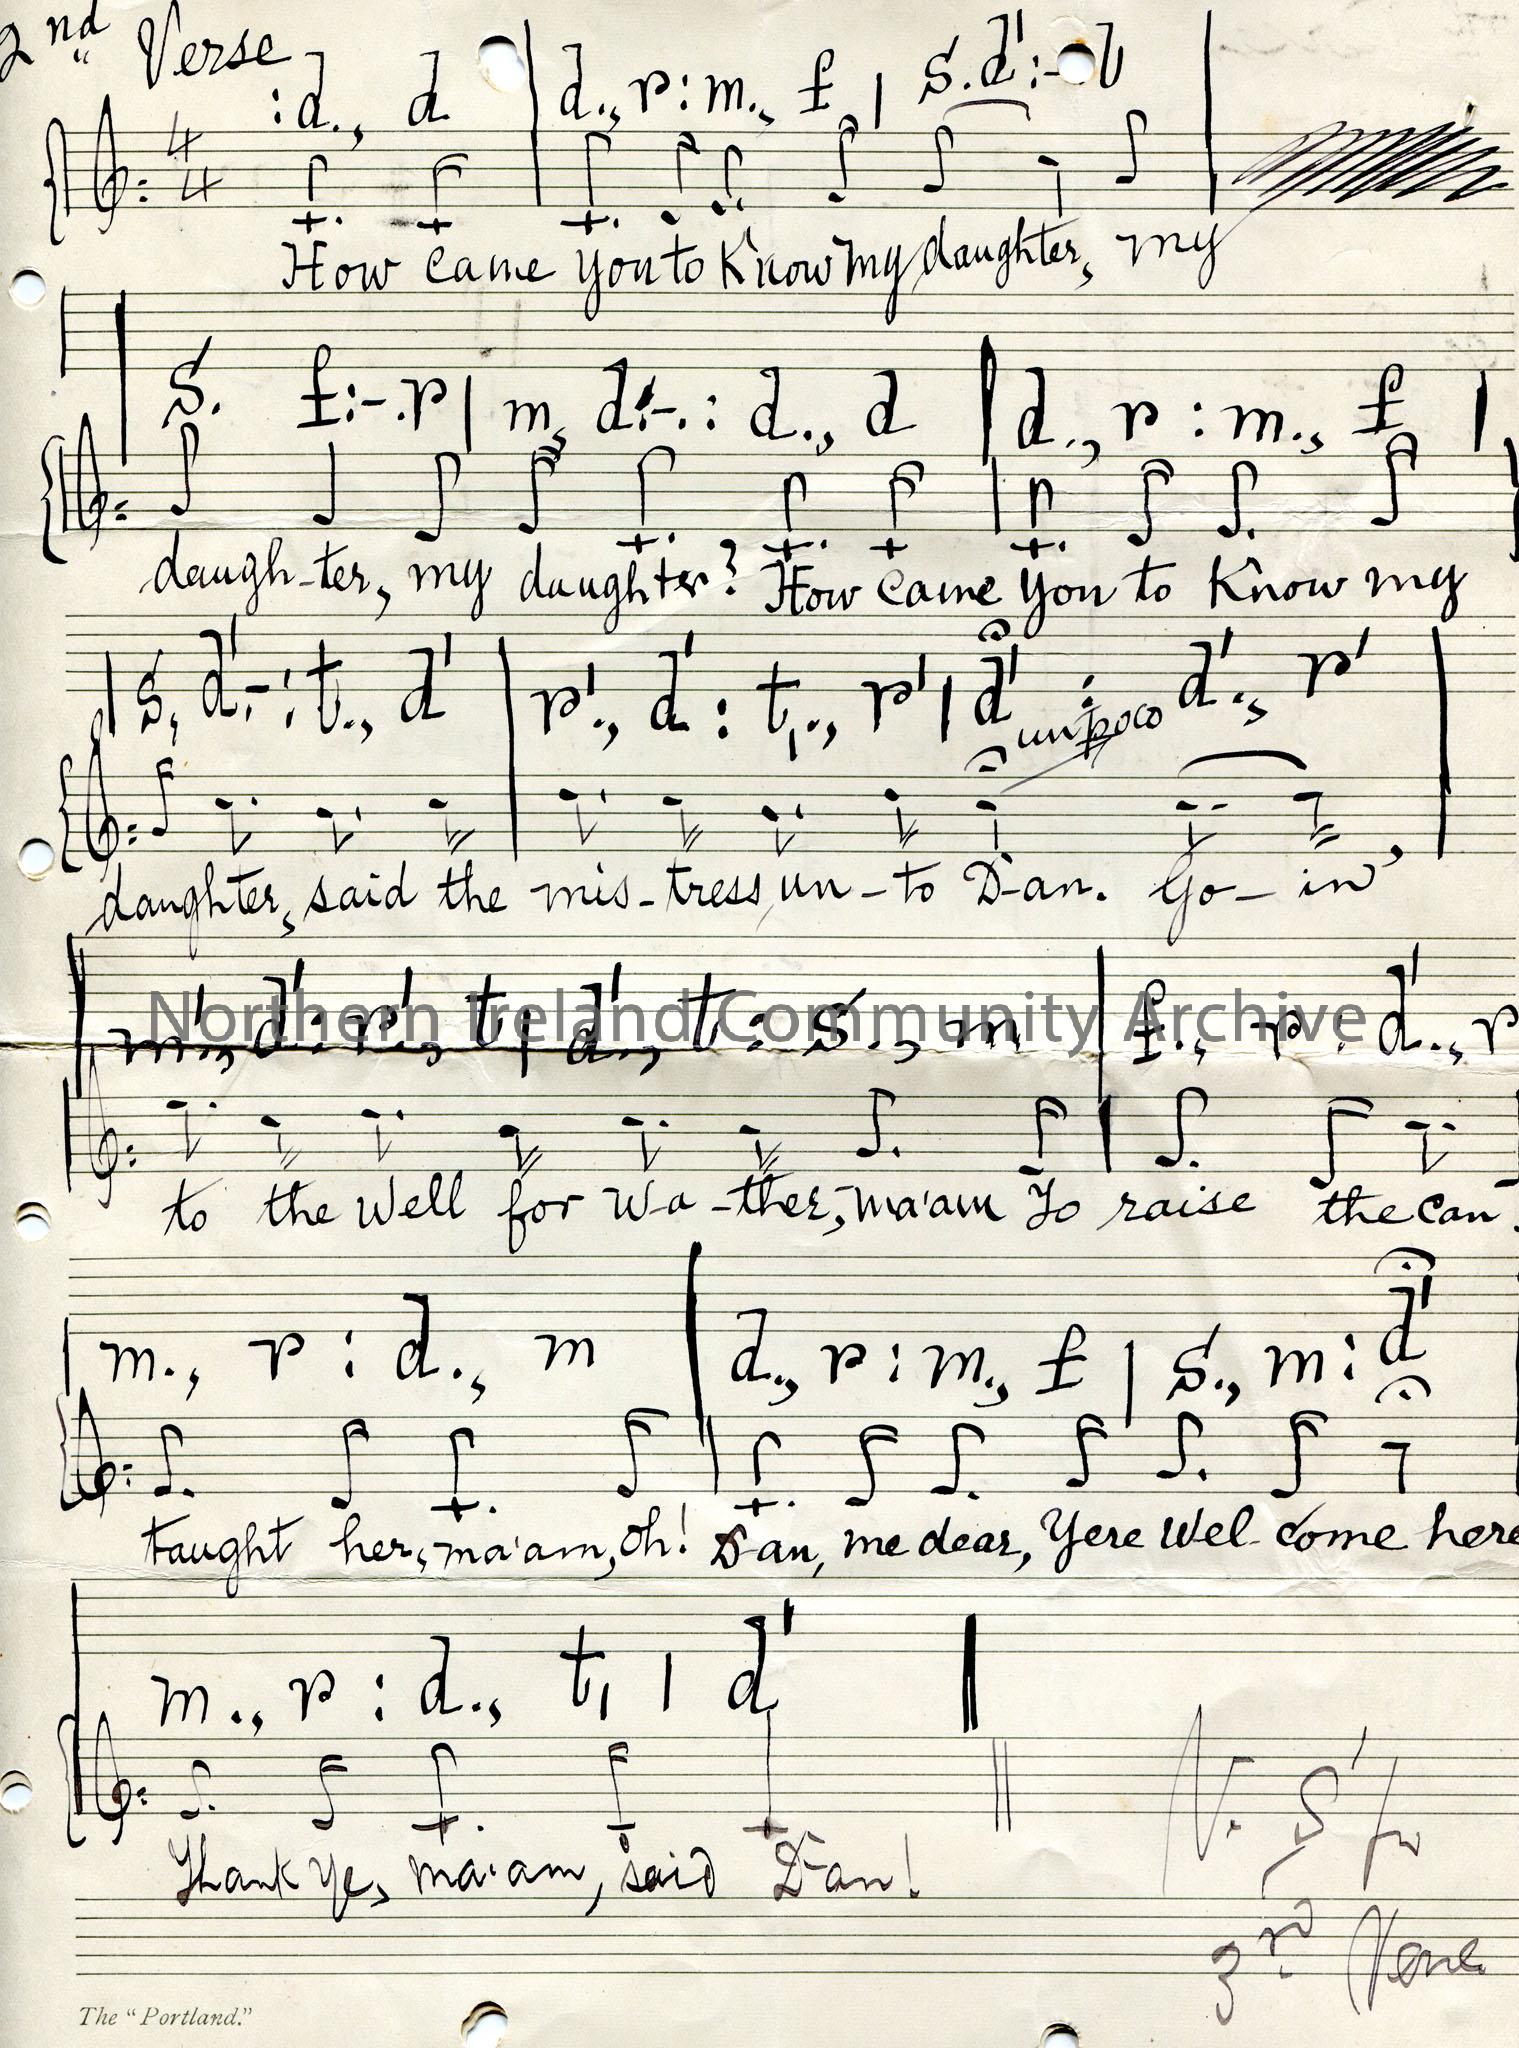 2nd Verse
:d., d | d., r : m., f | s.d' :-
4
4
How came you to Know my daughter, my
s. f :-.r | m, d :-. : d., d | d., r : m., f |
daugh-ter, my daughter? How came you to Know my
| s, d' :-: t., d' | r'., d' : t,., r' | d' : d'., r' |
un poco
daughter, said the mis-tress un-to Dan. Go-in'
m'., d' : r'., t | d'., t : s., m | f., r : d'., r
to the well for wa-ther, ma'am To raise the can
| m., r : d., m | d., r : m., f | s., m : d'
taught her, ma'am, Oh! Dan, me dear, Yere wel-come here
m., r : d., t, | d'
Thank ye, ma'am, said Dan!
3rd Verse
The "Portland."
Northern Ireland Community Archive